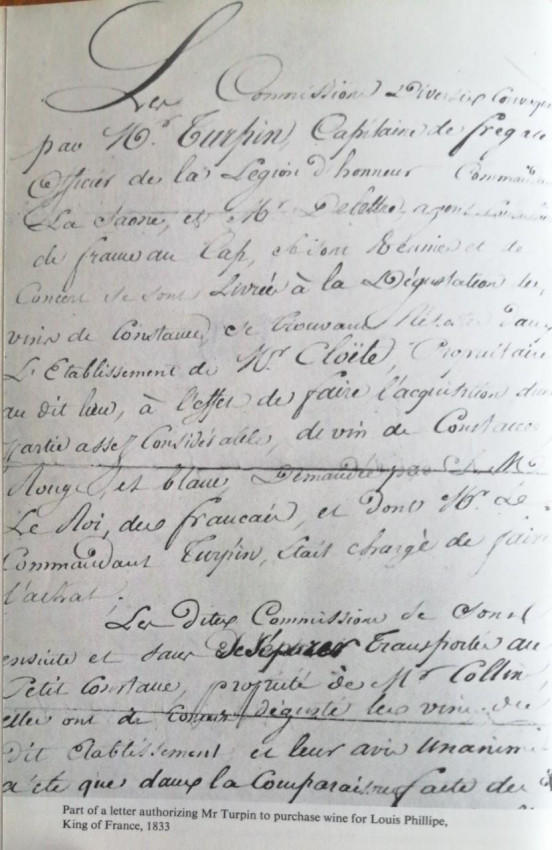 Les Commissions Diverses
par Mr. Turpin, Capitaine de fregate
Officier de la Légion d'honneur Commandant
La Saone, et Mr. Delettre, agent
de france au Cap, réunies et de
Concert se sont Livrée à la Dégustation des
vins de Constance, se trouvant dans
L'Etablissement de Mr. Cloëte, Propriétaire
au dit lieu, à l'effet de faire l'acquisition d'une
partie assez Considérable, de vin de Constance
Rouge, et blanc, Demandée par
Le Roi, des francais, et dont Mr. Le
Commandant Turpin, était chargé de faire
l'achat.
Les dites Commissions se sont
ensuite et sans Transportée au
Petit Constance, propriété de Mr. Collin,
elles ont dégusté les vins du
dit Etablissement et leur avis unanime
a été que dans la Comparaison faite des
Part of a letter authorizing Mr Turpin to purchase wine for Louis Phillipe,
King of France, 1833